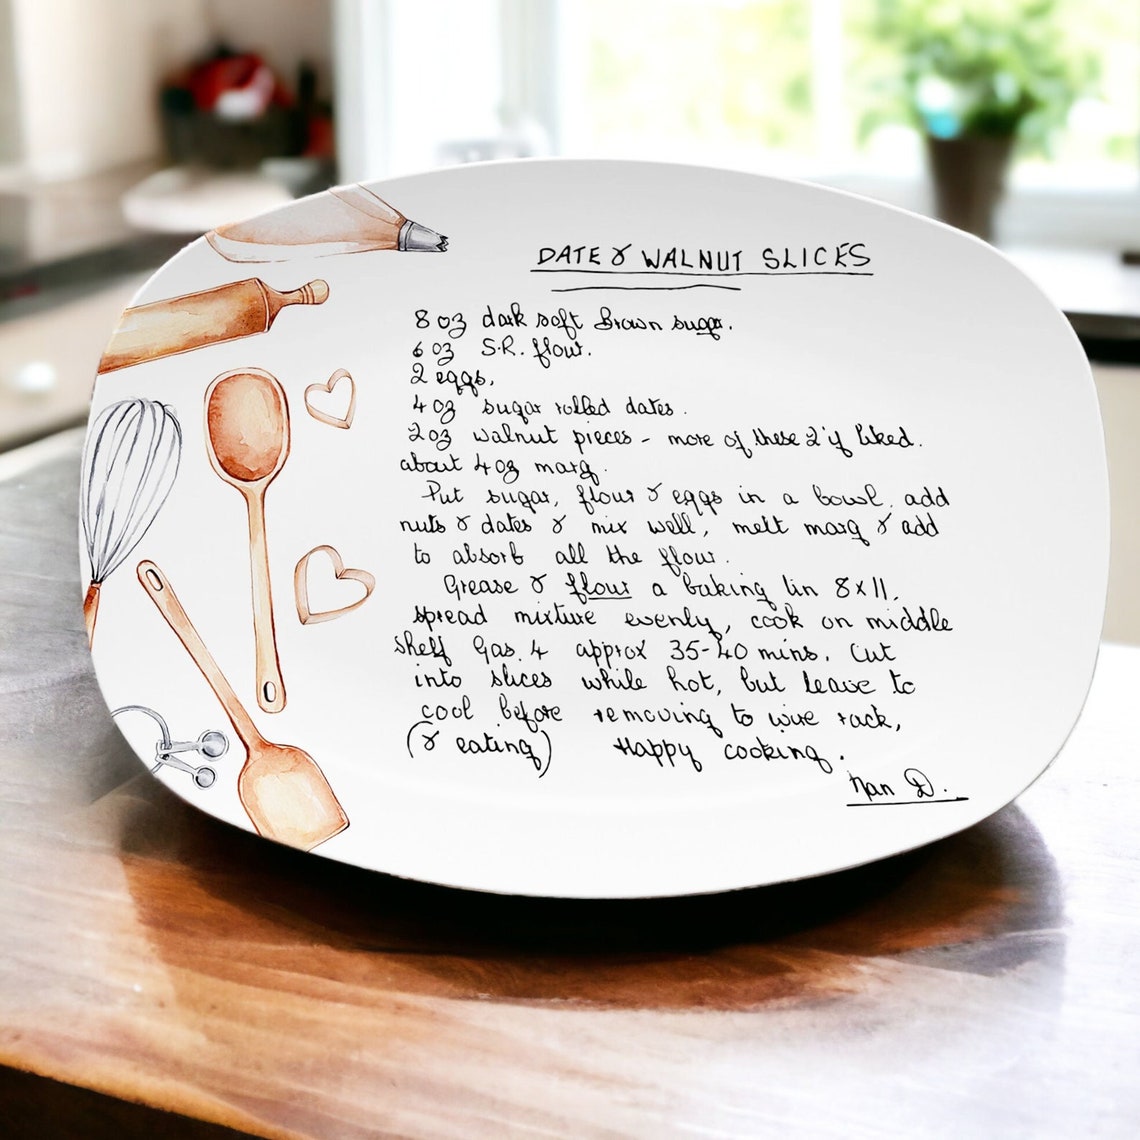 DATE & WALNUT SLICES
8 oz dark soft Brown sugar.
6 oz S.R. flour.
2 eggs.
4 oz sugar rolled dates.
2 oz walnut pieces - more of these 2 if liked.
about 4 oz marg.
Put sugar, flour & eggs in a bowl, add
nuts & dates & mix well, melt marg & add
to absorb all the flour.
Grease & flour a baking tin 8x11,
spread mixture evenly, cook on middle
shelf Gas. 4 approx 35-40 mins. Cut
into slices while hot, but leave to
cool before removing to wire rack,
(& eating) Happy cooking.
Nan D.